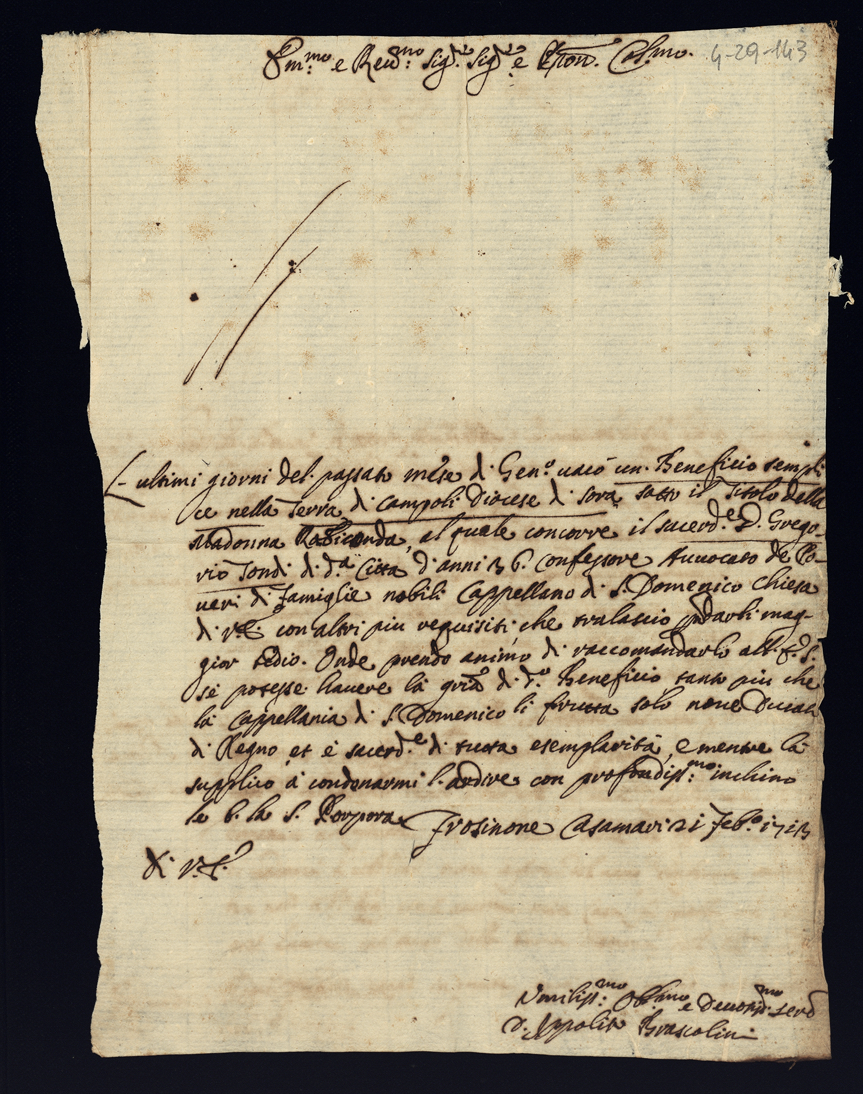 Em.mo e Reu.mo Sig.r Sig.r e Pron. Col.mo
4-29-143
L' ultimi giorni del passato mese di Gen.o uacò un Beneficio sempli
ce nella Terra di Campoli Diocese di Sora sotto il Titolo della
Madonna, al quale concorre il sacerd.e D. Grego-
rio Tondi di d.a Città d'anni 36. confessore Auuocato de Po-
ueri di famiglie nobili Cappellano di S. Domenico Chiesa
di V.E. con altri piu requisiti che tralascio darli mag-
gior tedio. Onde prendo animo di raccomandarlo all' E.S.
se potesse hauere la gr.a di d.o Beneficio tanto piu che
la Cappellania di S. Domenico li frutta solo noue Ducati
di Regno, et è sacerd.e di tutta esemplarità, e mentre la
supplico à condonarmi l'ardire con profondiss.mo inchino
le b. la S. Porpora. Frosinone Casamari 21 Feb.o 1713
Di V.E.
Vmiliss.mo Obb.mo e Deuotiss.mo serd
D. Ippolito Brascolini